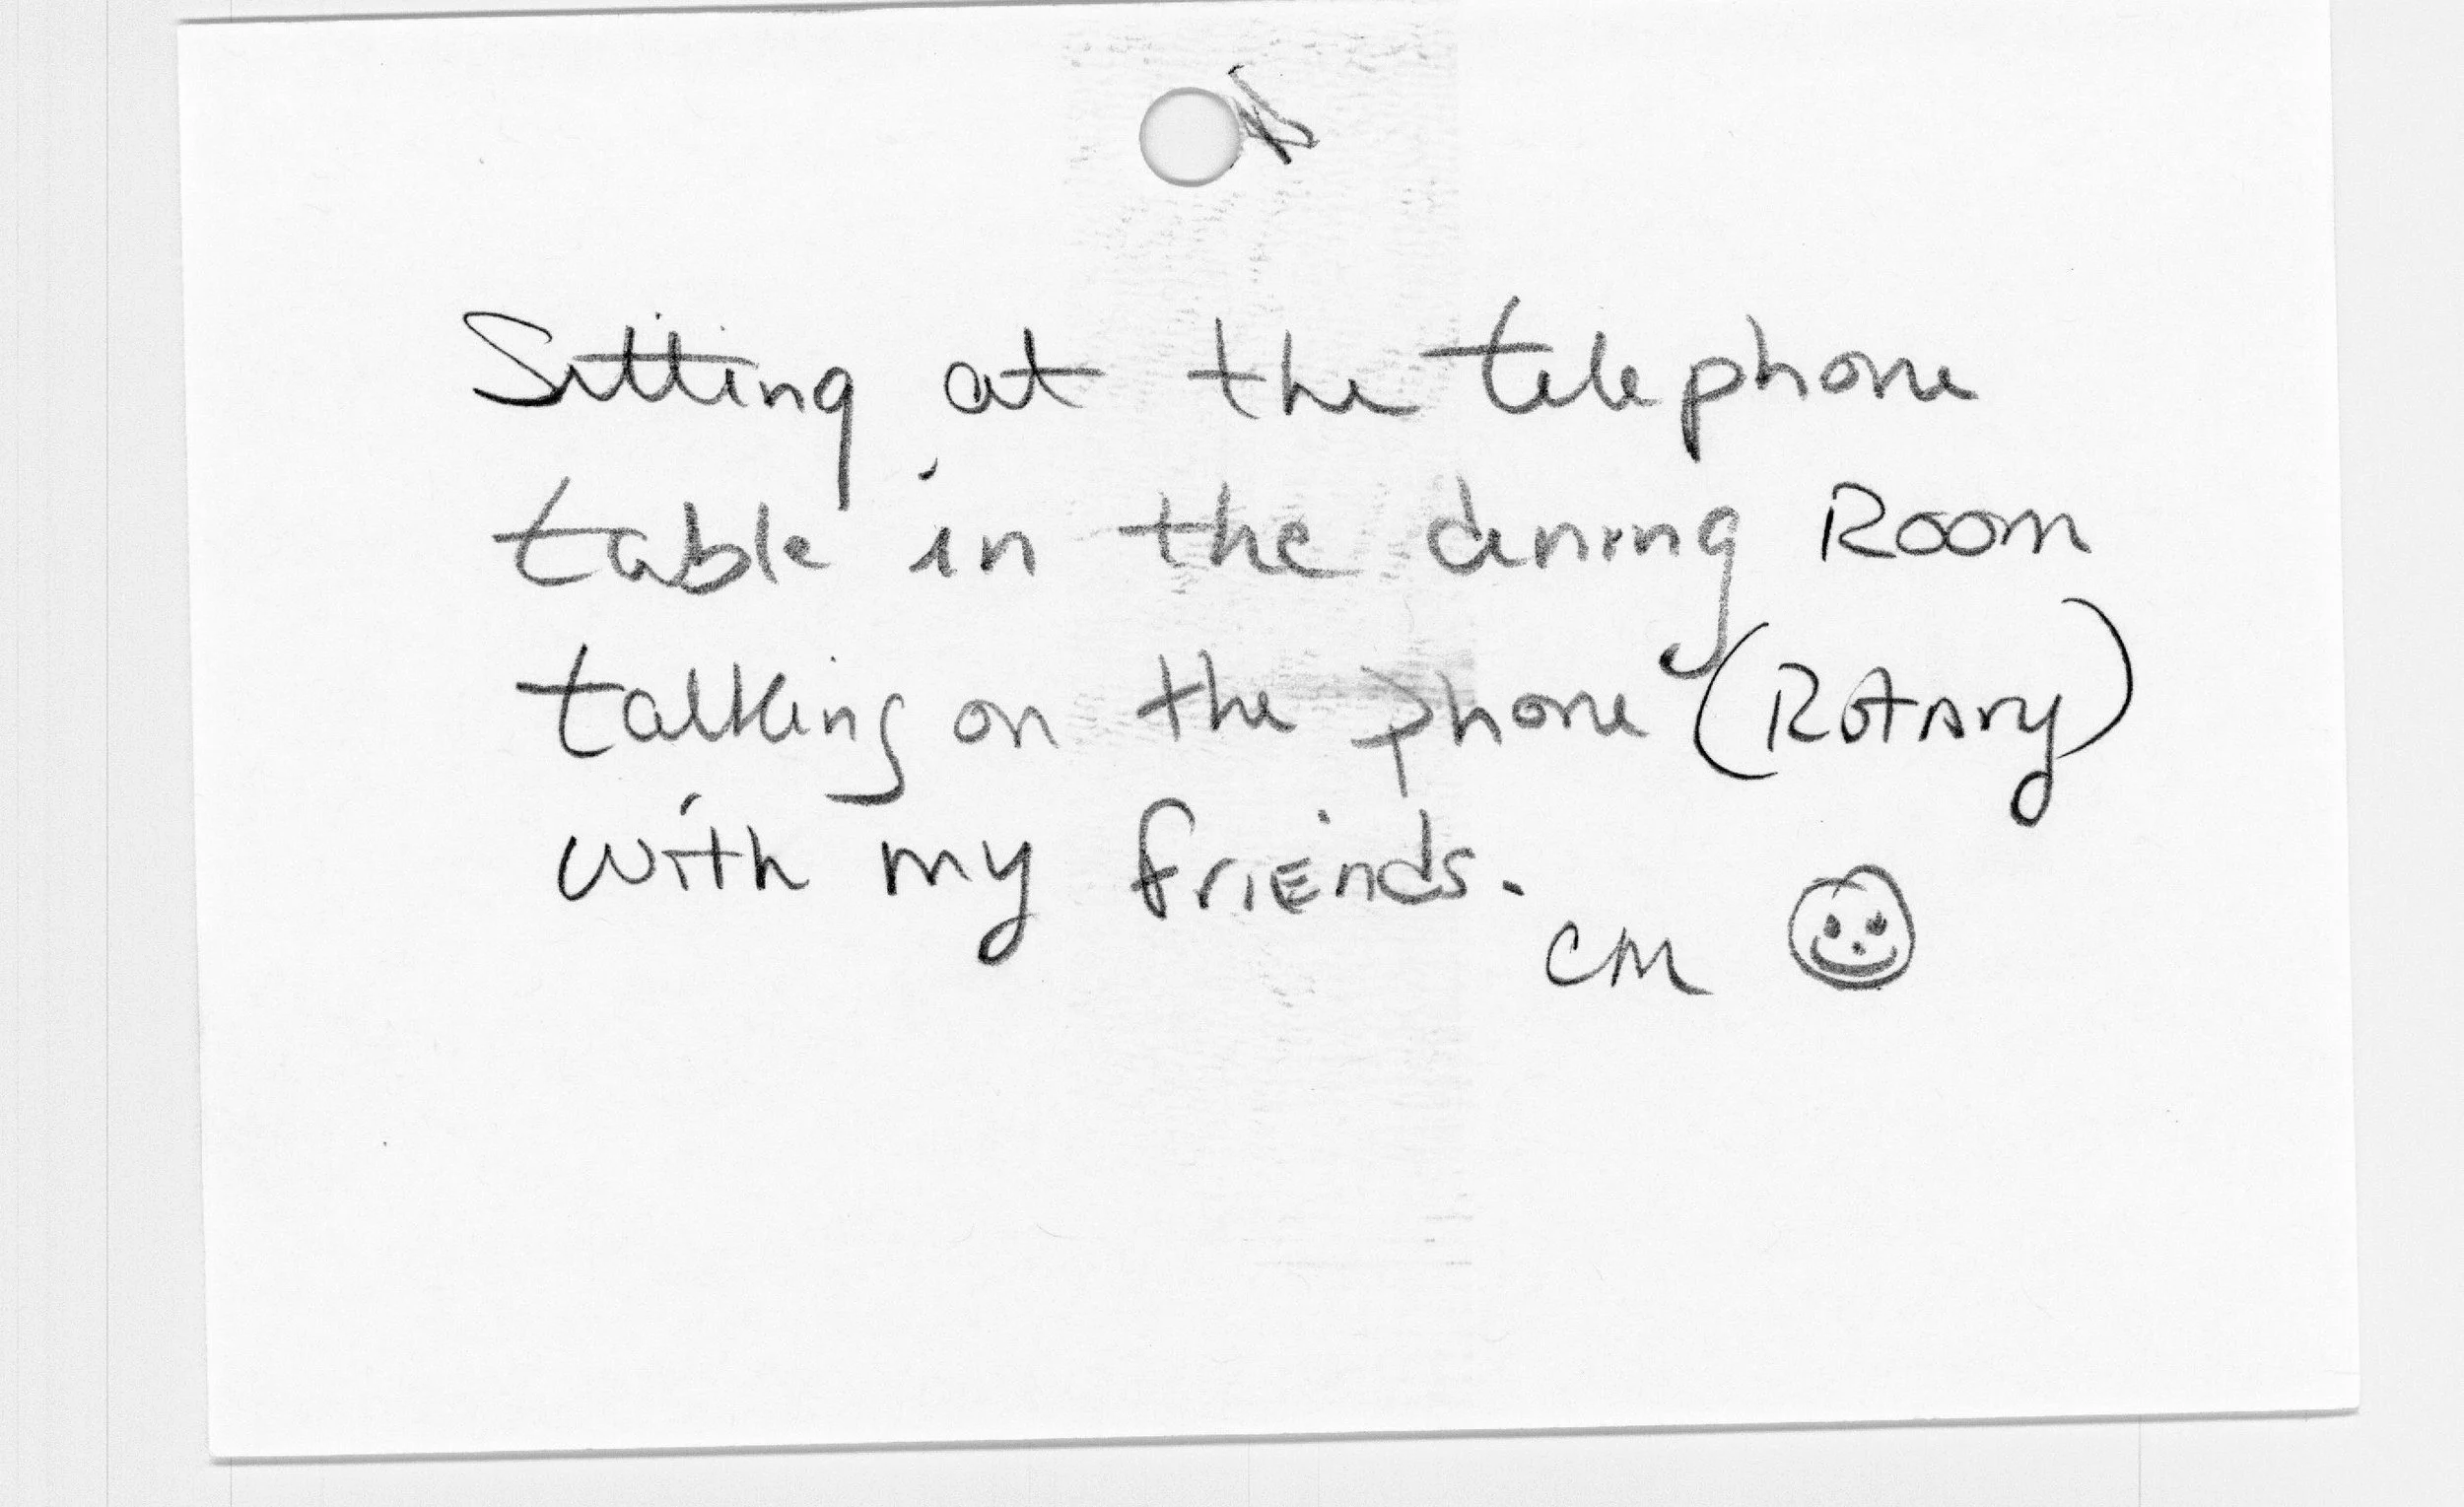 Sitting at the telephone
table in the dining Room
talking on the phone (Rotary)
with my friends.
CM